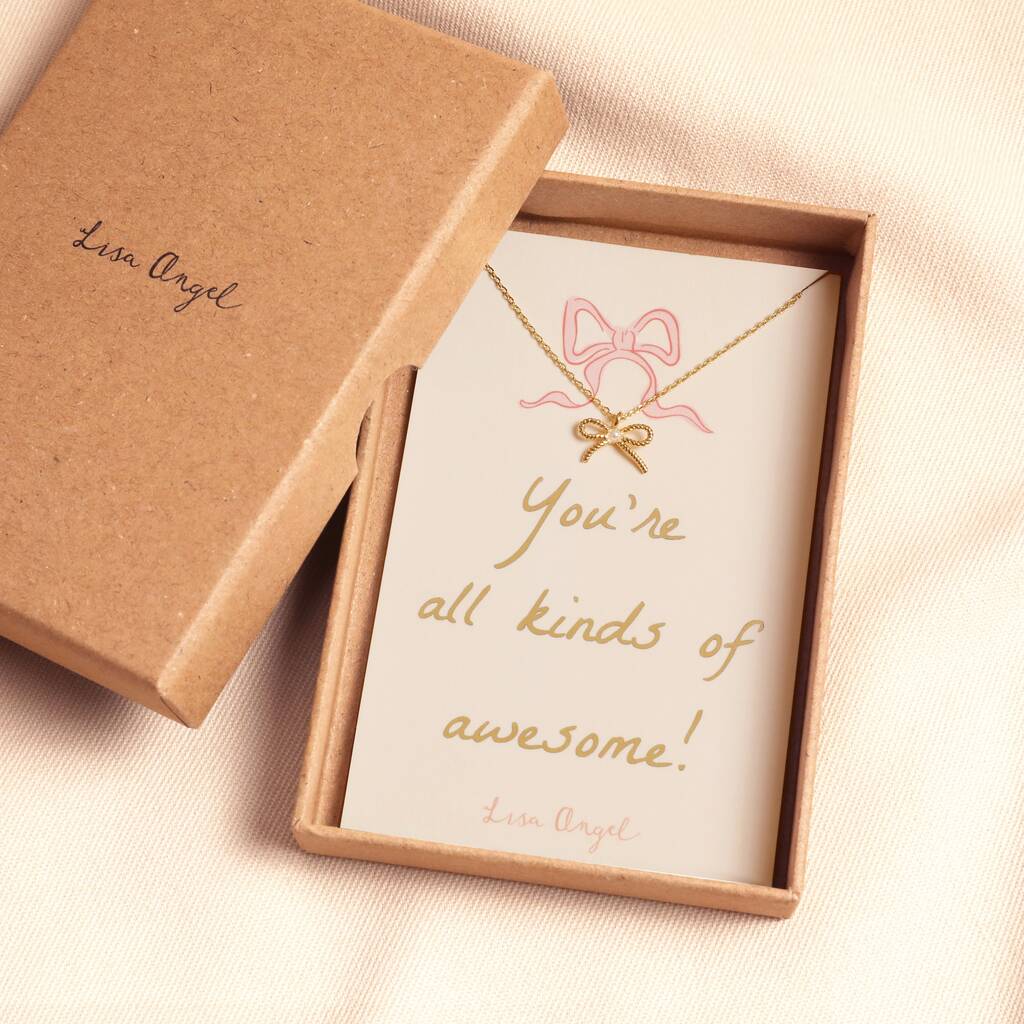 Lisa Angel
You're
all kinds of
awesome!
Lisa Angel